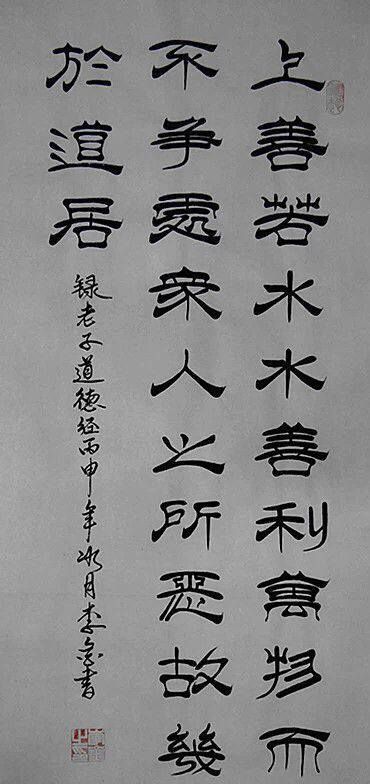 上善若水水善利萬物而
不争處衆人之所惡故幾
於道居
録老子道德经丙申年月李書